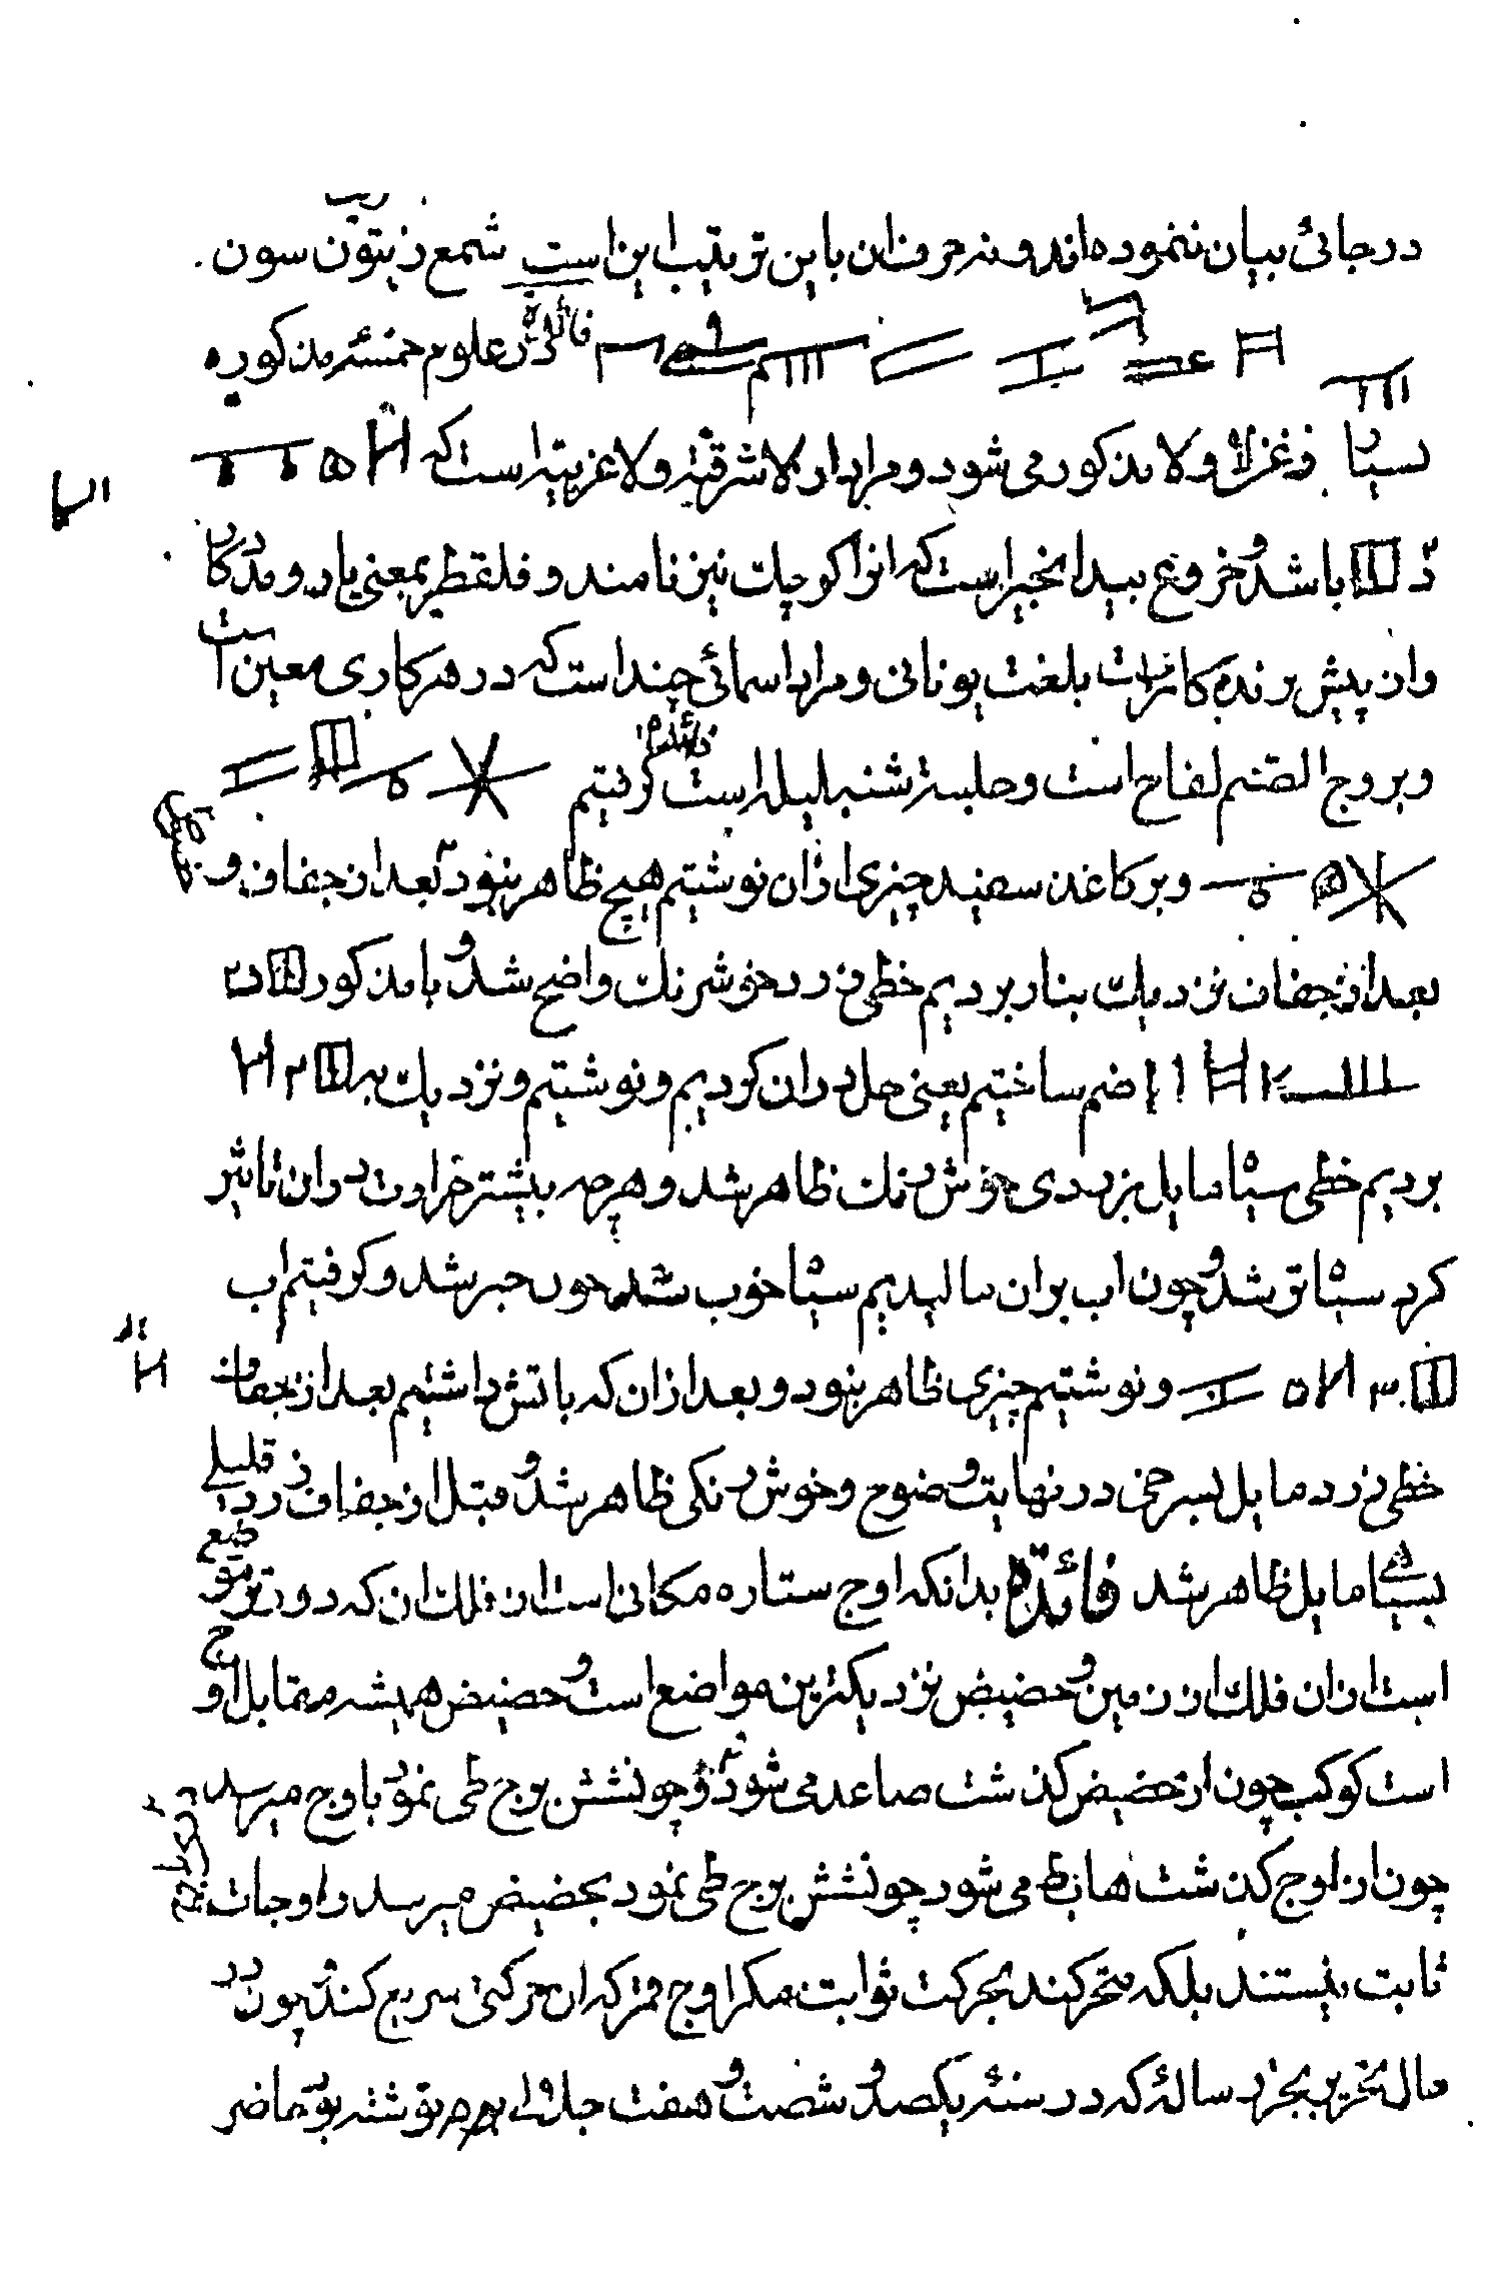 در جائی بیان ننموده‌اند و نه حرف ان باین ترتیب این است شمع زیتون سون
فائده در علوم خمسئه مذکوره
بسیار و لا مذکور می شود و مراد از لا شرقیة و لا غربیة است که
باشد و خروع بید انجیر است که انرا کوچک نیز نامند و فلقطیر بمعنی یاد و مددکار
وان پیش برنده کار است بلغت یونانی و مراد اسمائی چند است که در هر کاری معین است
و یبروج الصنم لفاح است و حلبة شنبلیله است فائده گرفتیم
و بر کاغذ سفید چیزی از ان نوشتیم هیچ ظاهر نبود بعد از جفاف و
بعد از جفاف نزدیک بنار بردیم خطی زرد خوش رنگ واضح شد و با مذکور
ضم ساختیم یعنی حل در ان کردیم و نوشتیم و نزدیک به
بردیم خطی سیاه مایل بزردی خوش رنگ ظاهر شد و هر چه بیشتر حرارت در ان تاثیر
کرد سیاه تر شد و چون اب بر ان مالیدیم سیاه خوب شد چون حبر شد و گرفتیم اب
و نوشتیم چیزی ظاهر نبود و بعد از ان که باتش داشتیم بعد از جفاف
خطی زرد مایل بسرخی در نهایت وضوح و خوش رنگی ظاهر شد و قبل از جفاف زرد قلیلی
بسیاهی مایل ظاهر شد فائده بدانکه اوج ستاره مکانی است از فلک ان که دورترین موضع
است از ان فلک از زمین و حضیض نزدیکترین مواضع است و حضیض همیشه مقابل اوج
است کوکب چون از حضیض کذشت صاعد می شود و چون شش برج طی نمود باوج میرسد
چون از اوج کذشت هابط می شود چون شش برج طی نمود بحضیض میرسد و اوجات
ثابت نیستند بلکه متحرکند بحرکت ثوابت مگر اوج قمر که ان حرکتی سریع کند چون در
سال تحریر رسالۀ که در سنئه یکصد و شصت و هفت جلالی نوشته بود